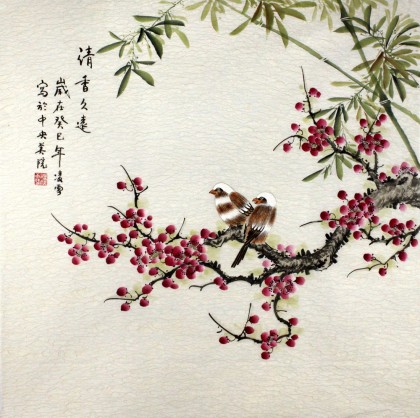 清香久遠
歲在癸巳年凌雪
寫於中央美院